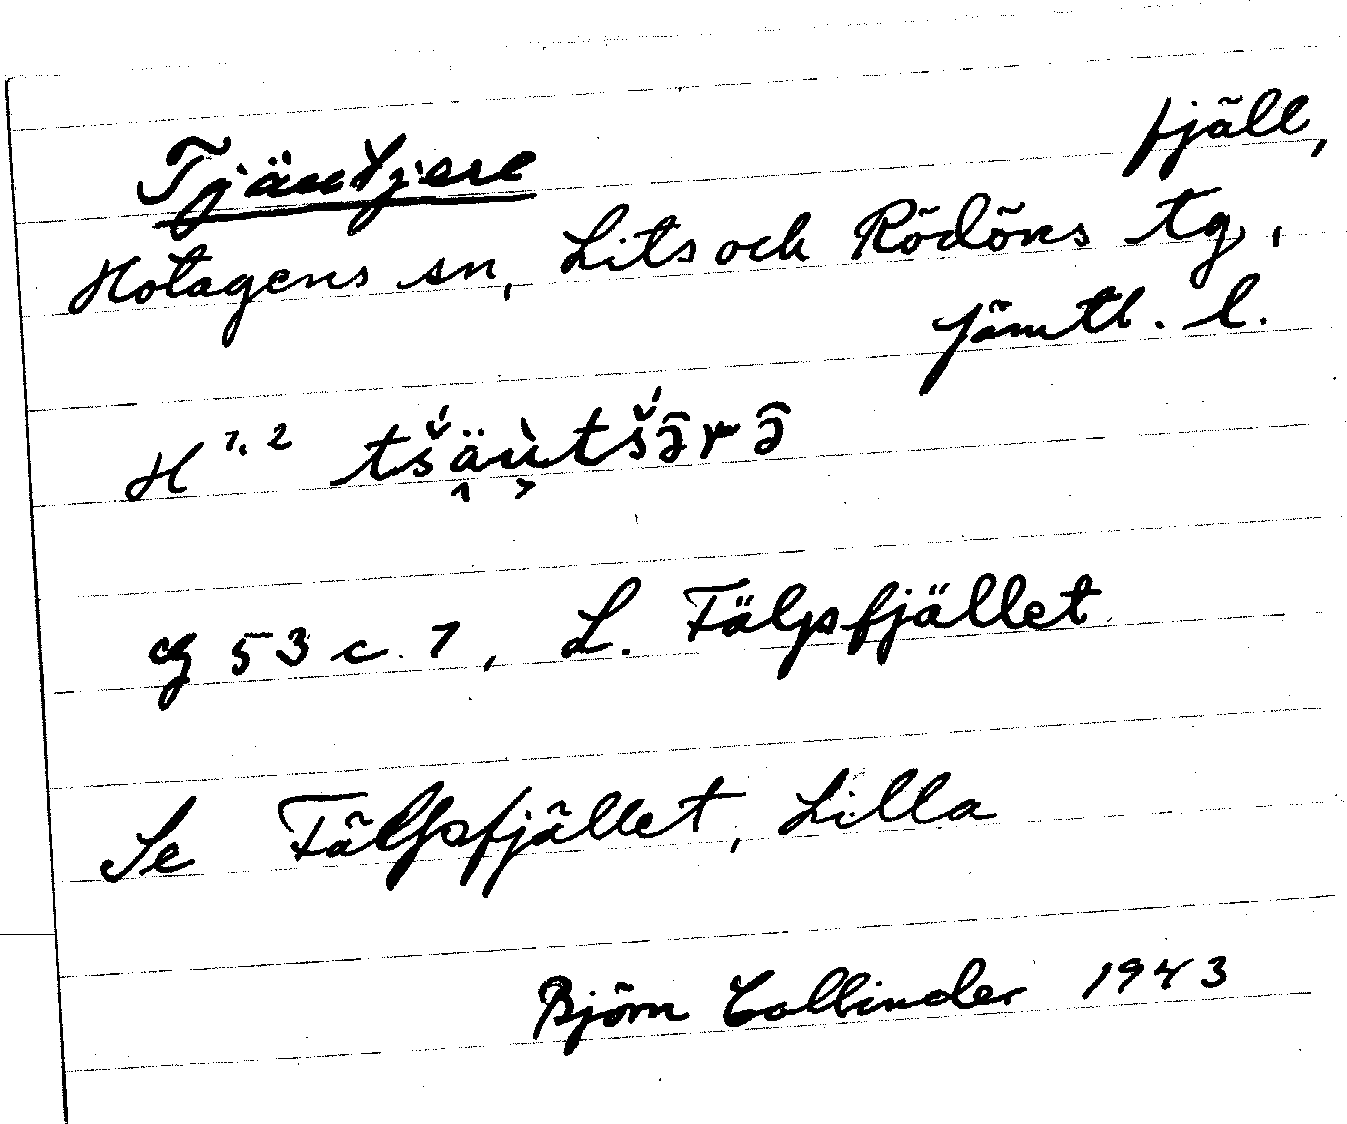 Tjäutjere fjäll,
Hotagens sn, Lits och Rödöns tg,
Jämtl. l.
H 1, 2
g 53 c. 7, L. Fälpsfjället
Se Fälpsfjället, Lilla
Björn Collinder 1943